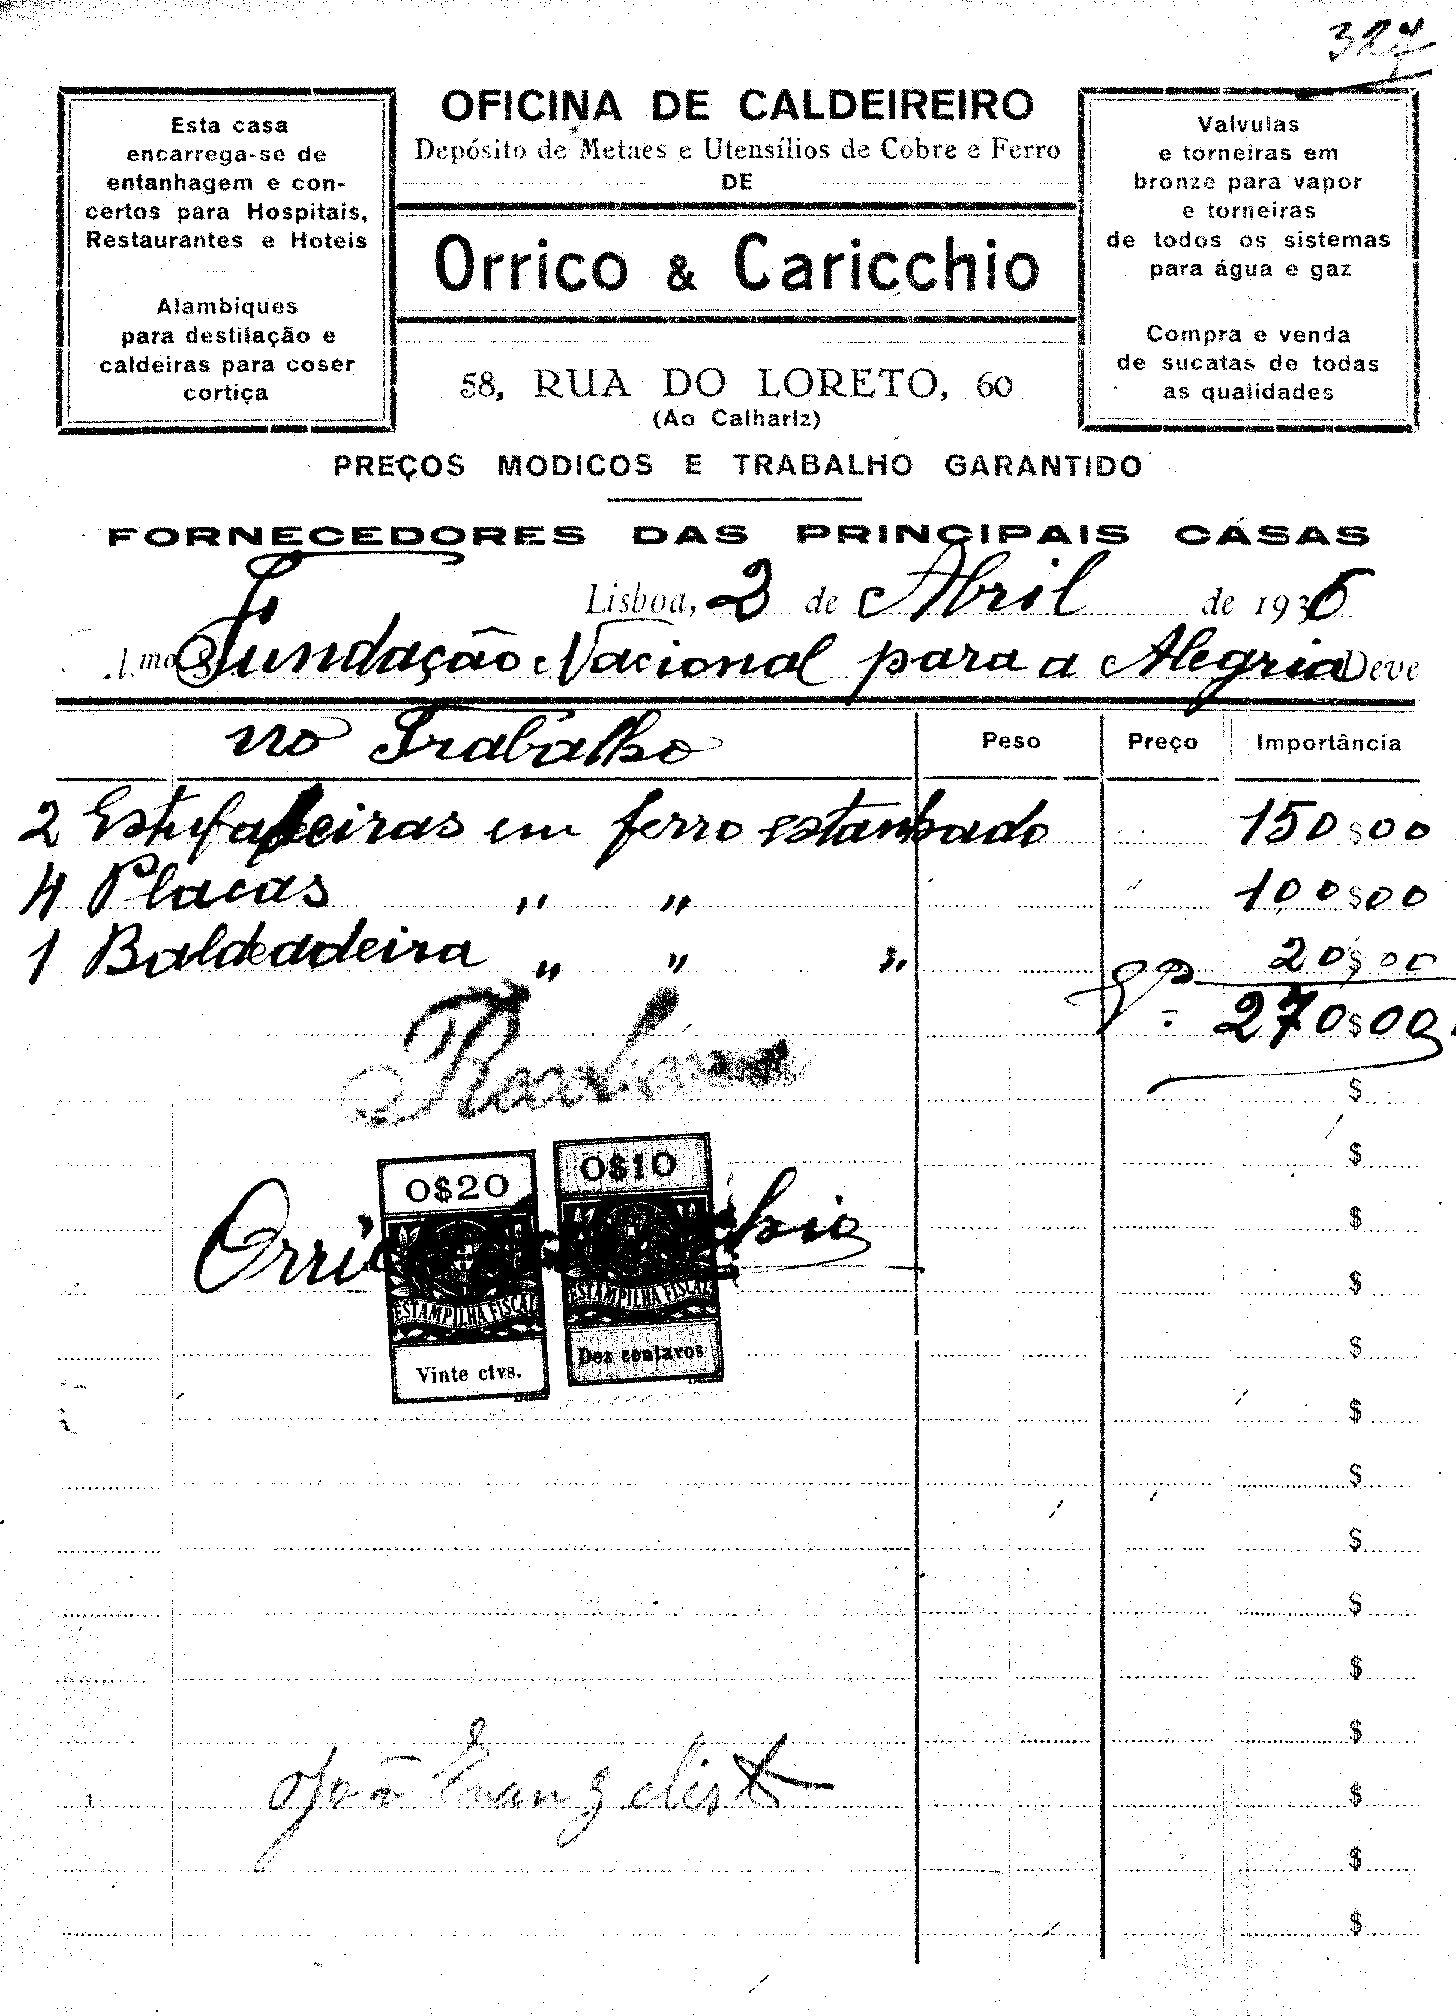 327
Esta casa
encarrega-se de
entanhagem e con-
certos para Hospitais,
Restaurantes e Hoteis
Alambiques
para destilação e
caldeiras para coser
cortiça
OFICINA DE CALDEIREIRO
Depósito de Metaes e Utensílios de Cobre e Ferro
DE
Orrico & Caricchio
58, RUA DO LORETO, 60
(Ao Calhariz)
Valvulas
e torneiras em
bronze para vapor
e torneiras
de todos os sistemas
para água e gaz
Compra e venda
de sucatas de todas
as qualidades
PREÇOS MODICOS E TRABALHO GARANTIDO
FORNECEDORES DAS PRINCIPAIS CASAS
Lisboa, 2 de Abril de 1936
Fundação Nacional para a Alegria Deve
no Trabalho Peso Preço Importância
2 Estufadeiras em ferro estanhado 150$00
4 Placas " " 100$00
1 Baldeadeira " " " 20$00
270$00
Recebemos
O$20 O$10
Orrico
ESTAMPILHA FISCAL ESTAMPILHA FISCAL
Vinte ctvs. Dez centavos
$
$
$
$
$
$
$
$
$
$
$
João Evangelista
$
$
$